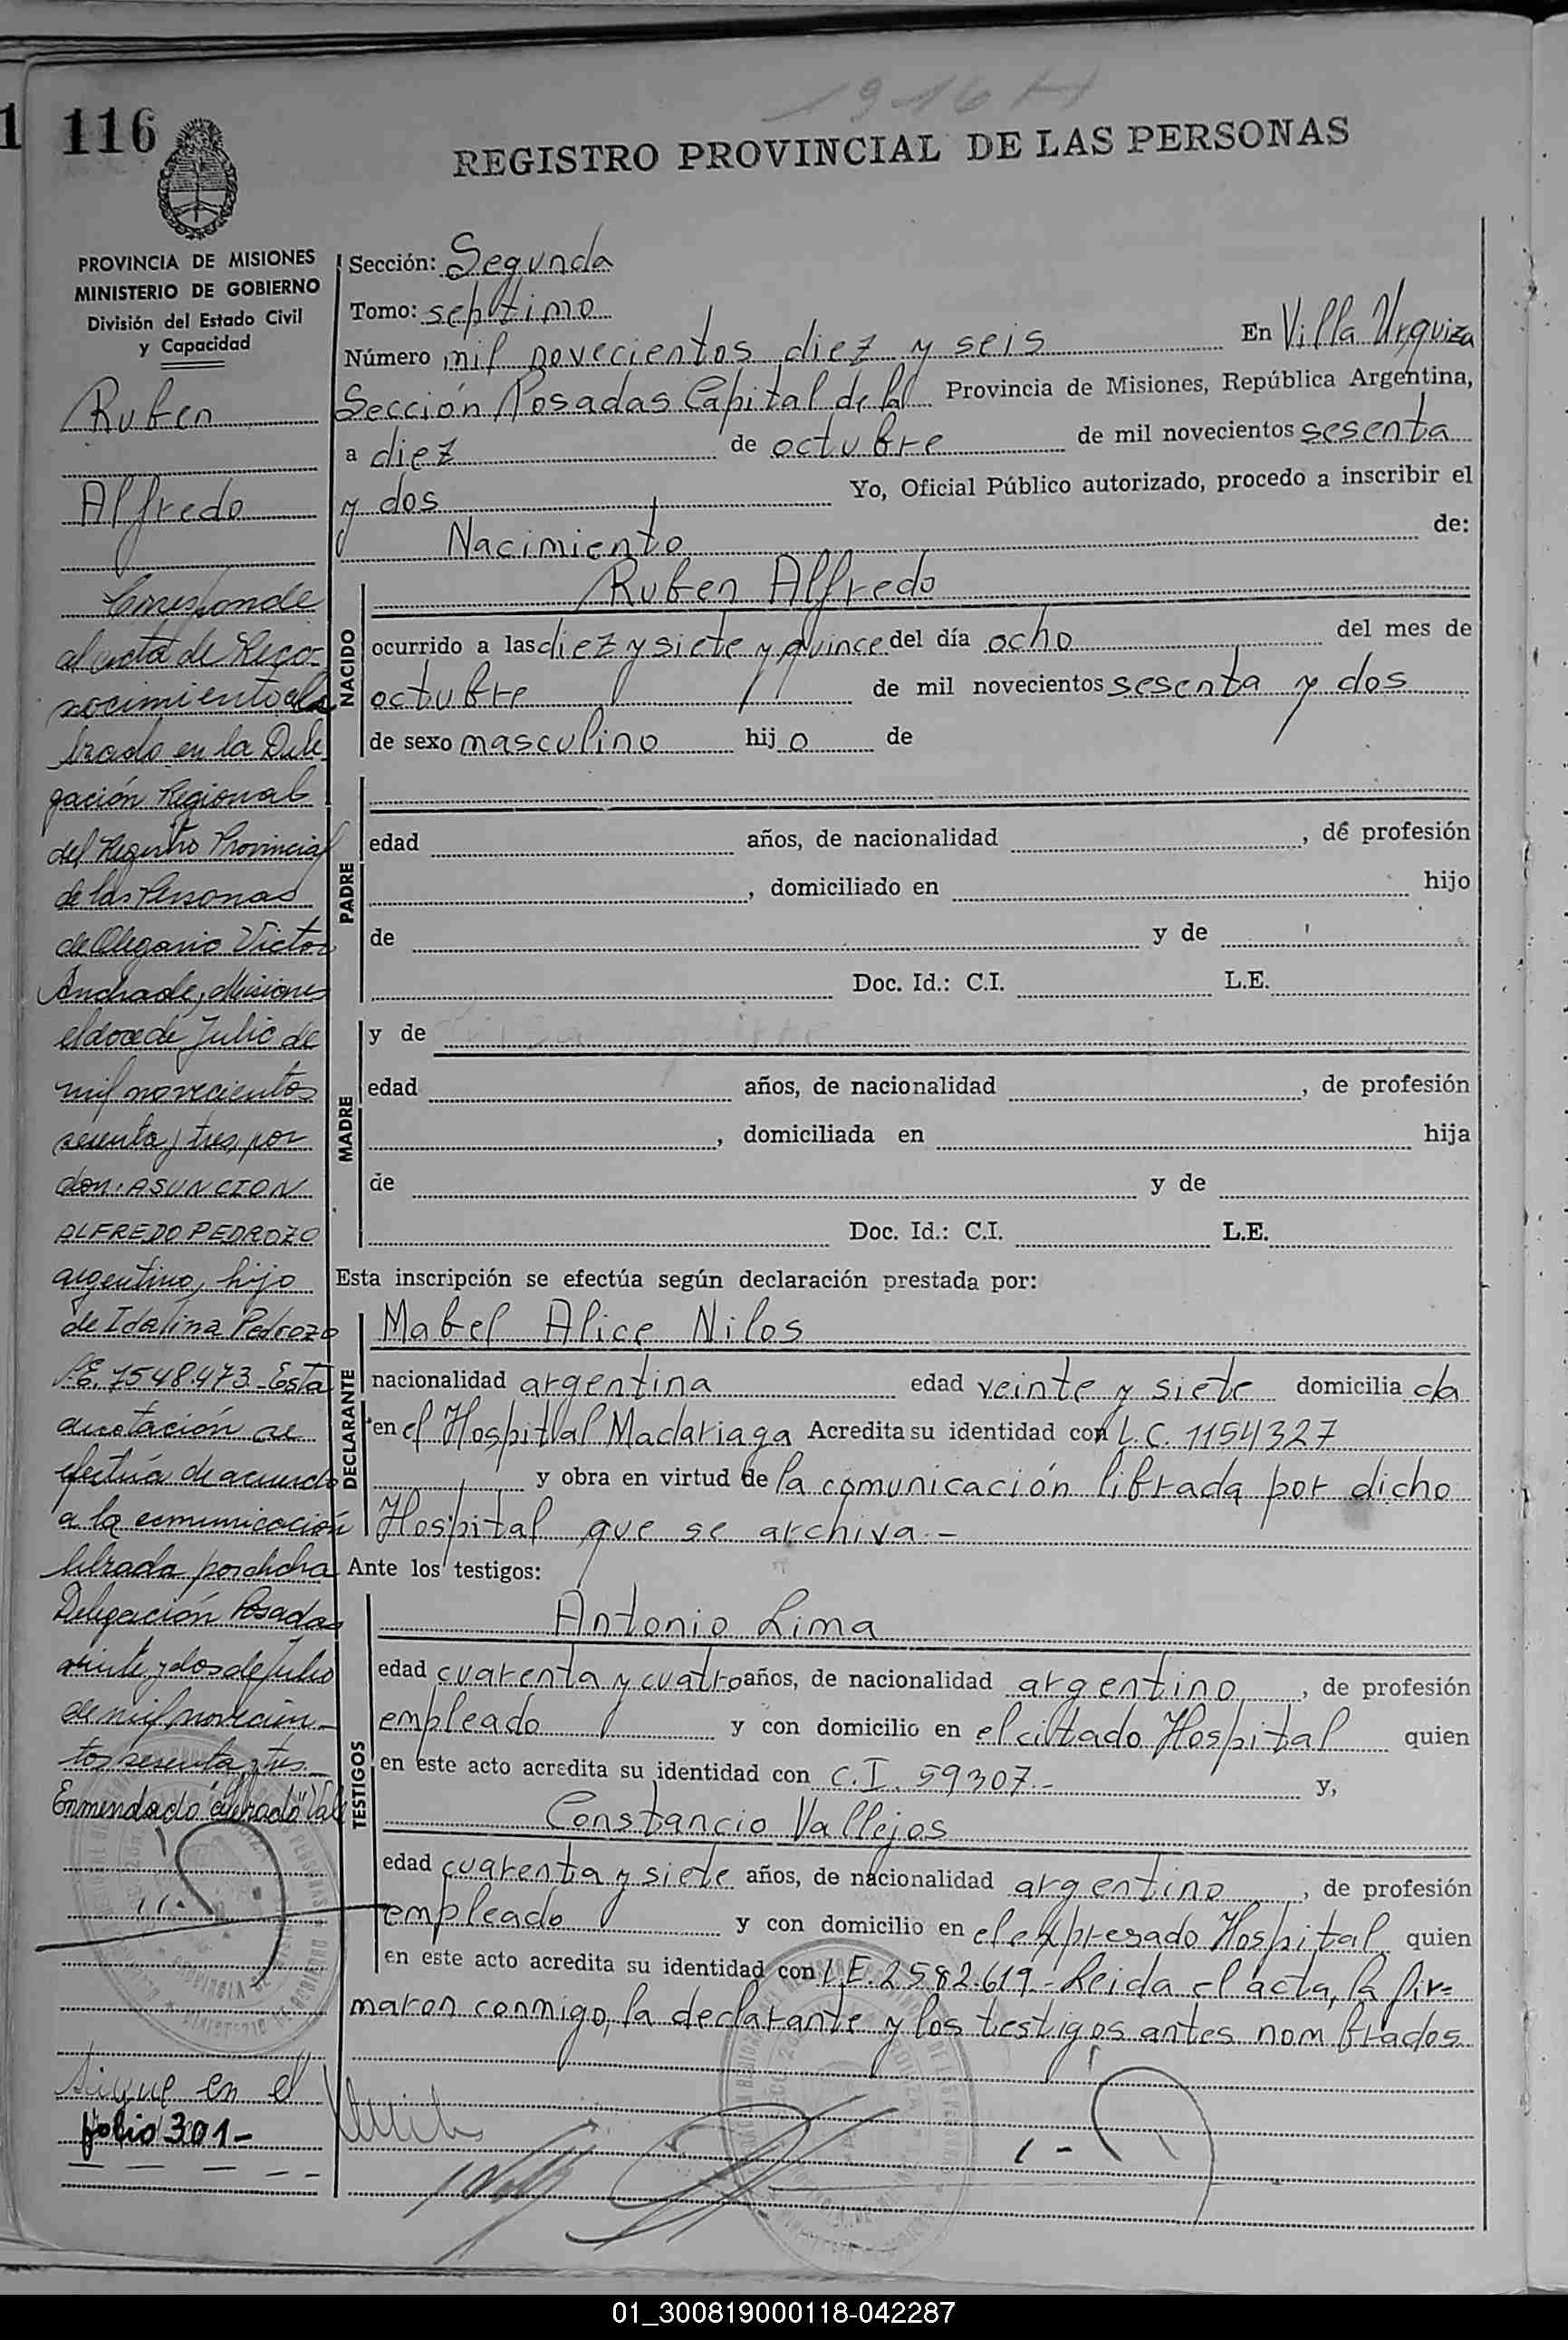 1916 H
1
116
REGISTRO PROVINCIAL DE LAS PERSONAS
PROVINCIA DE MISIONES
MINISTERIO DE GOBIERNO
División del Estado Civil
y Capacidad
Ruben
Alfredo
Corresponde
al acta de Reco-
nocimiento cele
brado en la Dele
gación Regional
del Registro Provincial
de las Personas
de Olegario Victor
Andrade, Misiones
el doce de Julio de
mil novecientos
sesenta y tres, por
don: ASUNCION
ALFREDO PEDROZO
argentino, hijo
de Idalina Pedrozo
L.E. 7548.473 - Esta
anotación se
efectúa de acuerdo
a la comunicación
librada por dicha
Delegación Posadas
veinte y dos de Julio
de mil novecien-
tos sesenta y tres.-
Enmendado "celebrado" Vale
Sigue en el
folio 301-
Sección: Segunda
Tomo: septtimo
Número mil novecientos diez y seis En Villa Urquiza
Sección Posadas Capital de la Provincia de Misiones, República Argentina,
a diez de octubre de mil novecientos sesenta
y dos Yo, Oficial Público autorizado, procedo a inscribir el
Nacimiento de:
NACIDO
Ruben Alfredo
ocurrido a las diez y siete y quince del día ocho del mes de
octubre de mil novecientos sesenta y dos
de sexo masculino hijo de
PADRE
edad años, de nacionalidad , de profesión
, domiciliado en hijo
de y de
Doc. Id.: C.I. L.E.
MADRE
y de
edad años, de nacionalidad , de profesión
, domiciliada en hija
de y de
Doc. Id.: C.I. L.E.
Esta inscripción se efectúa según declaración prestada por:
DECLARANTE
Mabel Alice Nilos
nacionalidad argentina edad veinte y siete domicilia da
en el Hospitlal Madariaga Acredita su identidad con L.C. 1154327
y obra en virtud de la comunicación librada por dicho
Hospital que se archiva.-
Ante los testigos:
TESTIGOS
Antonio Lima
edad cuarenta y cuatro años, de nacionalidad argentino , de profesión
empleado y con domicilio en el cittado Hospital quien
en este acto acredita su identidad con C.I. 59307.- y,
Constancio Vallejos
edad cuarenta y siete años, de nacionalidad argentino , de profesión
empleado y con domicilio en el expresado Hospital quien
en este acto acredita su identidad con L.E. 2582.619- Leida el acta, la fir=
maron conmigo, la declarante y los testigos antes nombrados
01_300819000118-042287